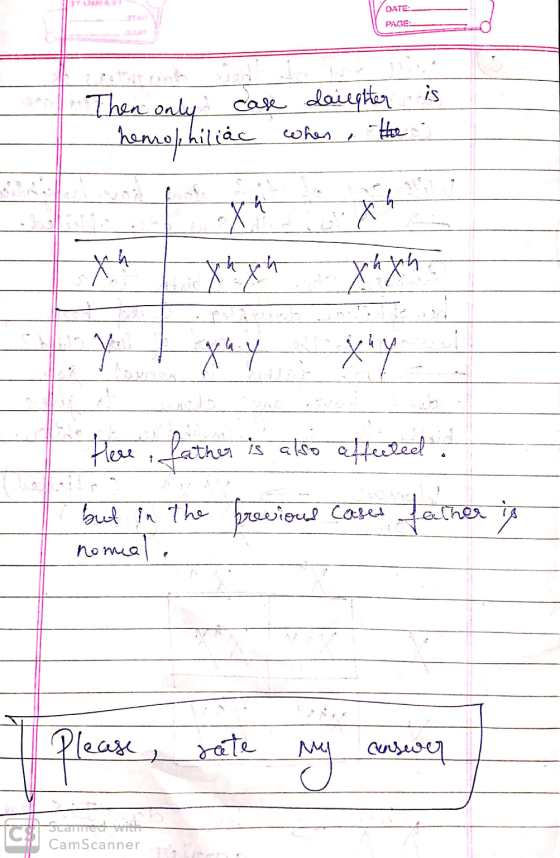 DATE:
PAGE:
Then only case daughter is
hemophiliac when, the
X^h X^h
X^h X^hX^h X^hX^h
Y X^hY X^hY
Here, father is also affected.
but in the previous cases father is
normal.
Please, rate my answer
CS Scanned with
CamScanner